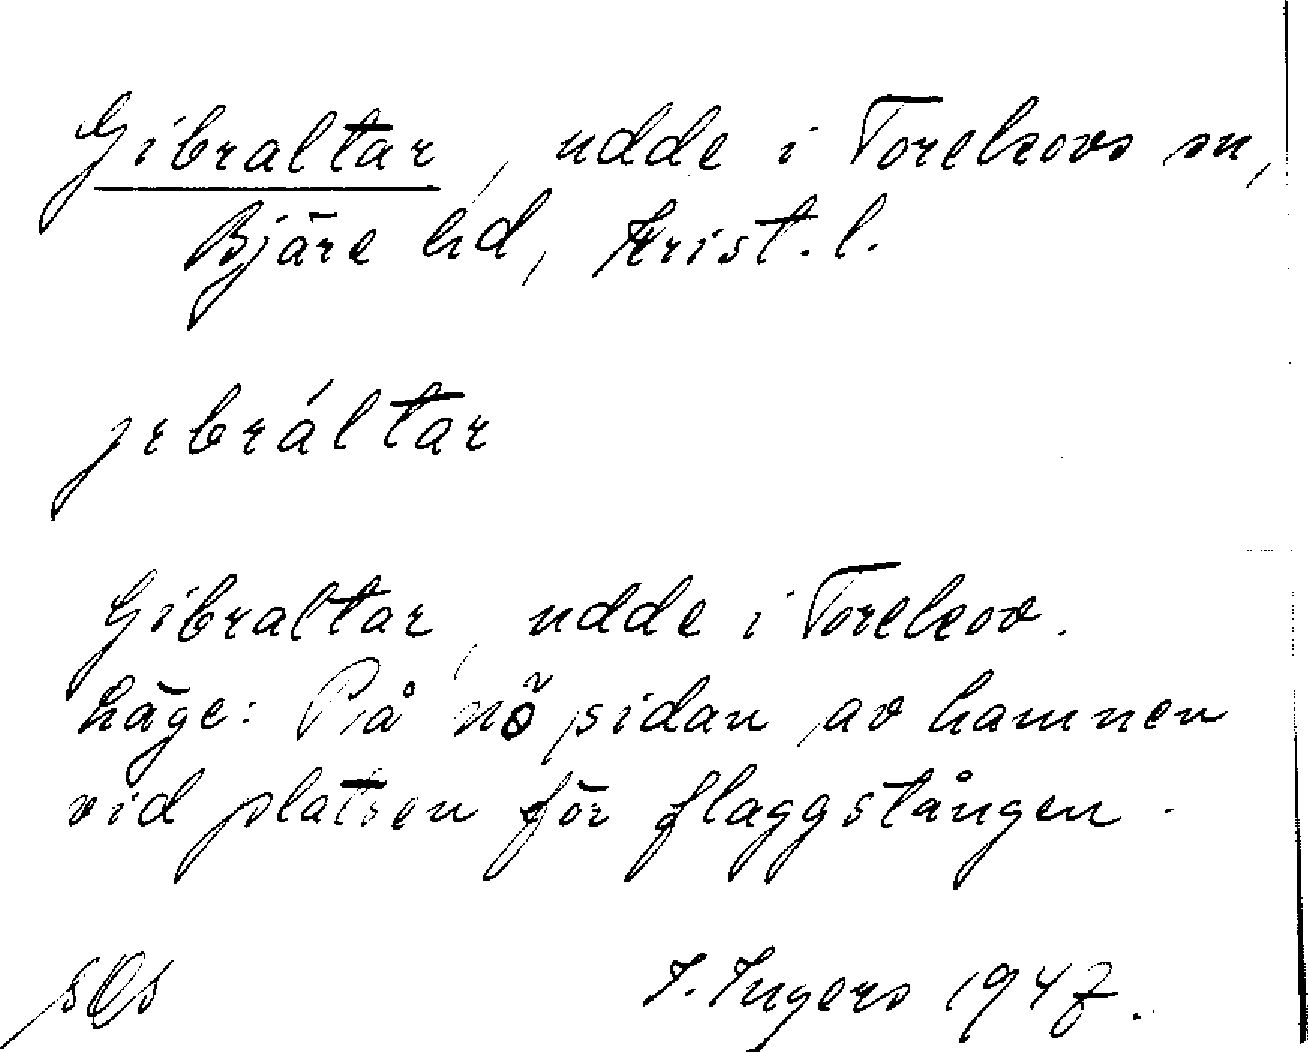 Gibraltar, udde i Torekovs sn,
Bjäre hd, Krist. l.
jıbráltar
Gibraltar, udde i Torekov.
Läge: På nö sidan av hamnen
vid platsen för flaggstången.
I. Ingers 1947.